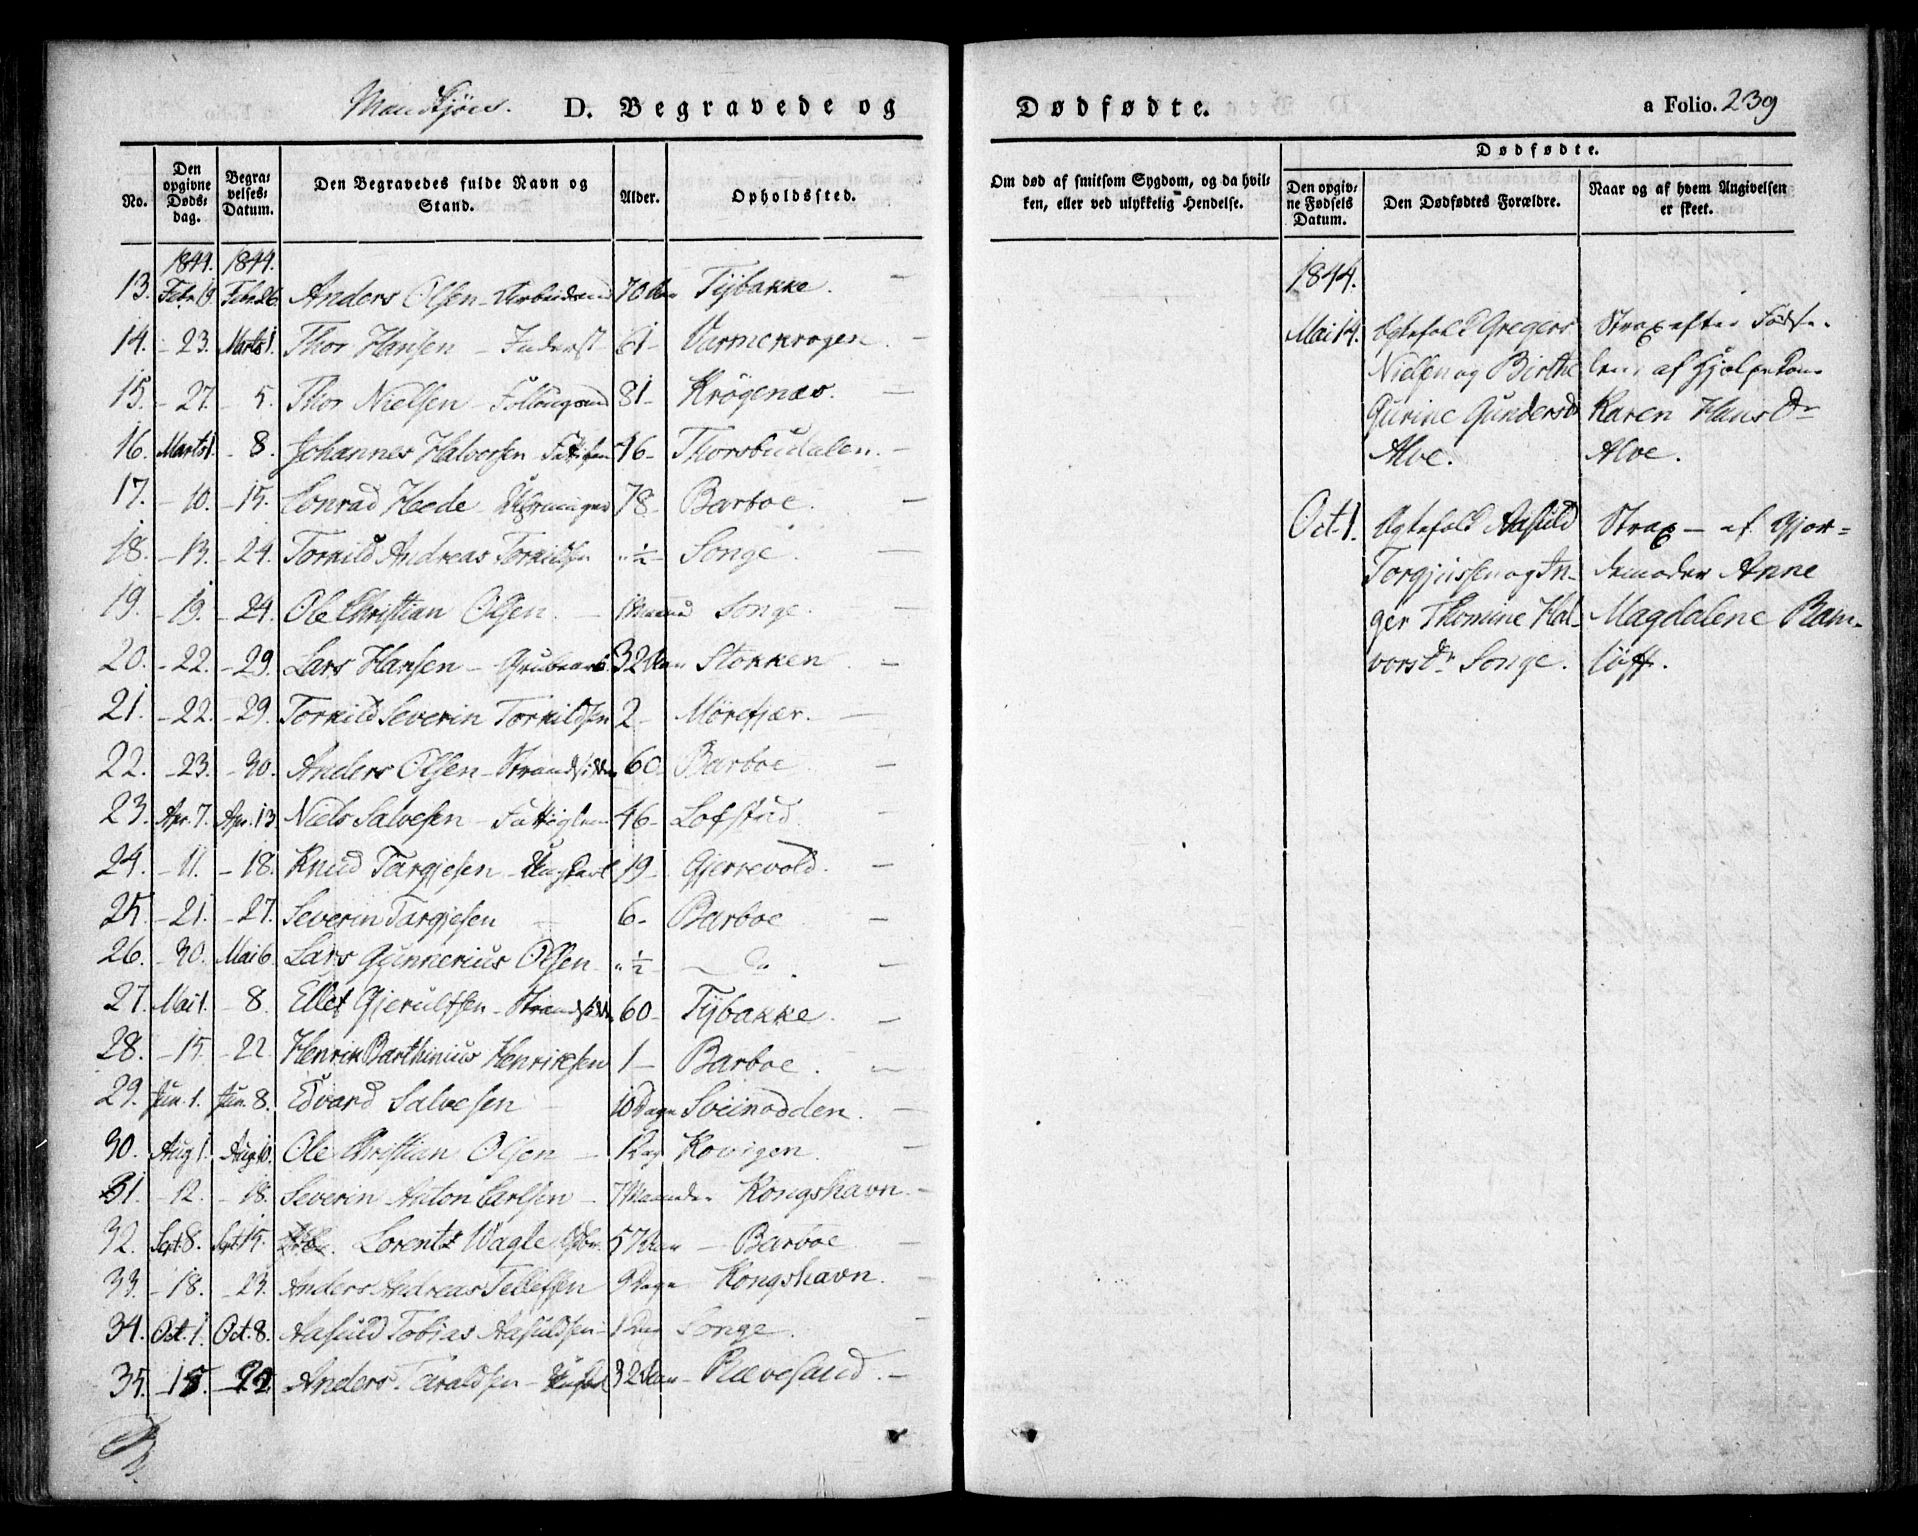 Mandkjøn. D. Begravede og
No.
Den opgivne Døds-dag.
Begra-velses-Datum.
Den Begravedes fulde Navn og Stand.
Alder.
Opholdssted.
1844. 1844.
13. Febr. 19. Febr. 26. Anders Olsen - 70 Aar Tybakke. -
14. - 23. Marts 1. Thor Hansen - Inderst 61 - Varmekrogen. -
15. - 27. - 5. Thor Nielsen - 81 - Krøgenæs. -
16. Marts 1. - 8. Johannes Halvorsen 46 - Thorsbudalen. -
17. - 10. - 15. Conrad Heede 78 - Barboe. -
18. - 13. - 24. Torkild Andreas Torkildsen " ½ - Songe. -
19. - 19. - 24. Ole Christian Olsen. - 1 Maaned Songe. -
20. - 22. - 29. Lars Hansen - 32 Aar Stokken. -
21. - 22. - 29. Torkild Severin Torkildsen 2 - Mørefjær. -
22. - 23. - 30. Anders Olsen - Strandsidder 60 - Barboe -
23. Apr. 7. Apr. 13 Niels Salvesen - 46 - Lofstud -
24. - 11. - 18. Knud Targjesen - Ungkarl 19 - Gjerrevold. -
25. - 21. - 27. Severin Targjesen 6 - Barboe -
26. - 30. Mai 6. Lars Gunnerius Olsen " ½ - do. -
27. Mai 1. - 8. Ellef Gjerulfsen - Strandsidder 60 - Tybakke. -
28. - 15. - 22. Henrik Barthinius Henriksen 1 - Barboe. -
29. Jun. 1. Jun. 8. Edvard Salvesen - 10 Dage Sveinodden. -
30. Aug 1. Aug. 10. Ole Christian Olsen - Dag Kovigen. -
31. - 12. - 18. Severin Anton Carlsen - 7 Maaneder Kongshavn. -
32. Sept. 8. Sept. 15. Lorentz Wagle 57 Aar - Barboe -
33. - 18. - 23. Anders Andreas Tellefsen 9 Dage Kongshavn. -
34. Oct. 1. Oct. 8. Aasuld Tobias Aasuldsen - 1 Dag Songe. -
35. - 15. - 22. Anders Taraldsen - Ungkarl 32 Aar - Rævesand. -
Dødfødte. a Folio. 239
Om død af smitsom Sygdom, og da hvil-
ken, eller ved ulykkelig Hendelse.
Dødfødte.
Den opgiv-ne Fødsels Datum.
Den Dødfødtes Forældre.
Naar og af hvem Angivelsen er skeet.
1844.
Mai 14. Ægtefolk Gregers Strax efter Fødse-
Nielsen og Birthe len af Hjælpekone
Gurine Gundersd Karen Hans Dr
Alve. Alve.
Oct. 1. Ægtefolk Aasuld Strax - af Gjor-
Torgjussen og In- demoder Anne
ger Thomine Hal- Magdalene Ram-
vors Dr Songe. løff.